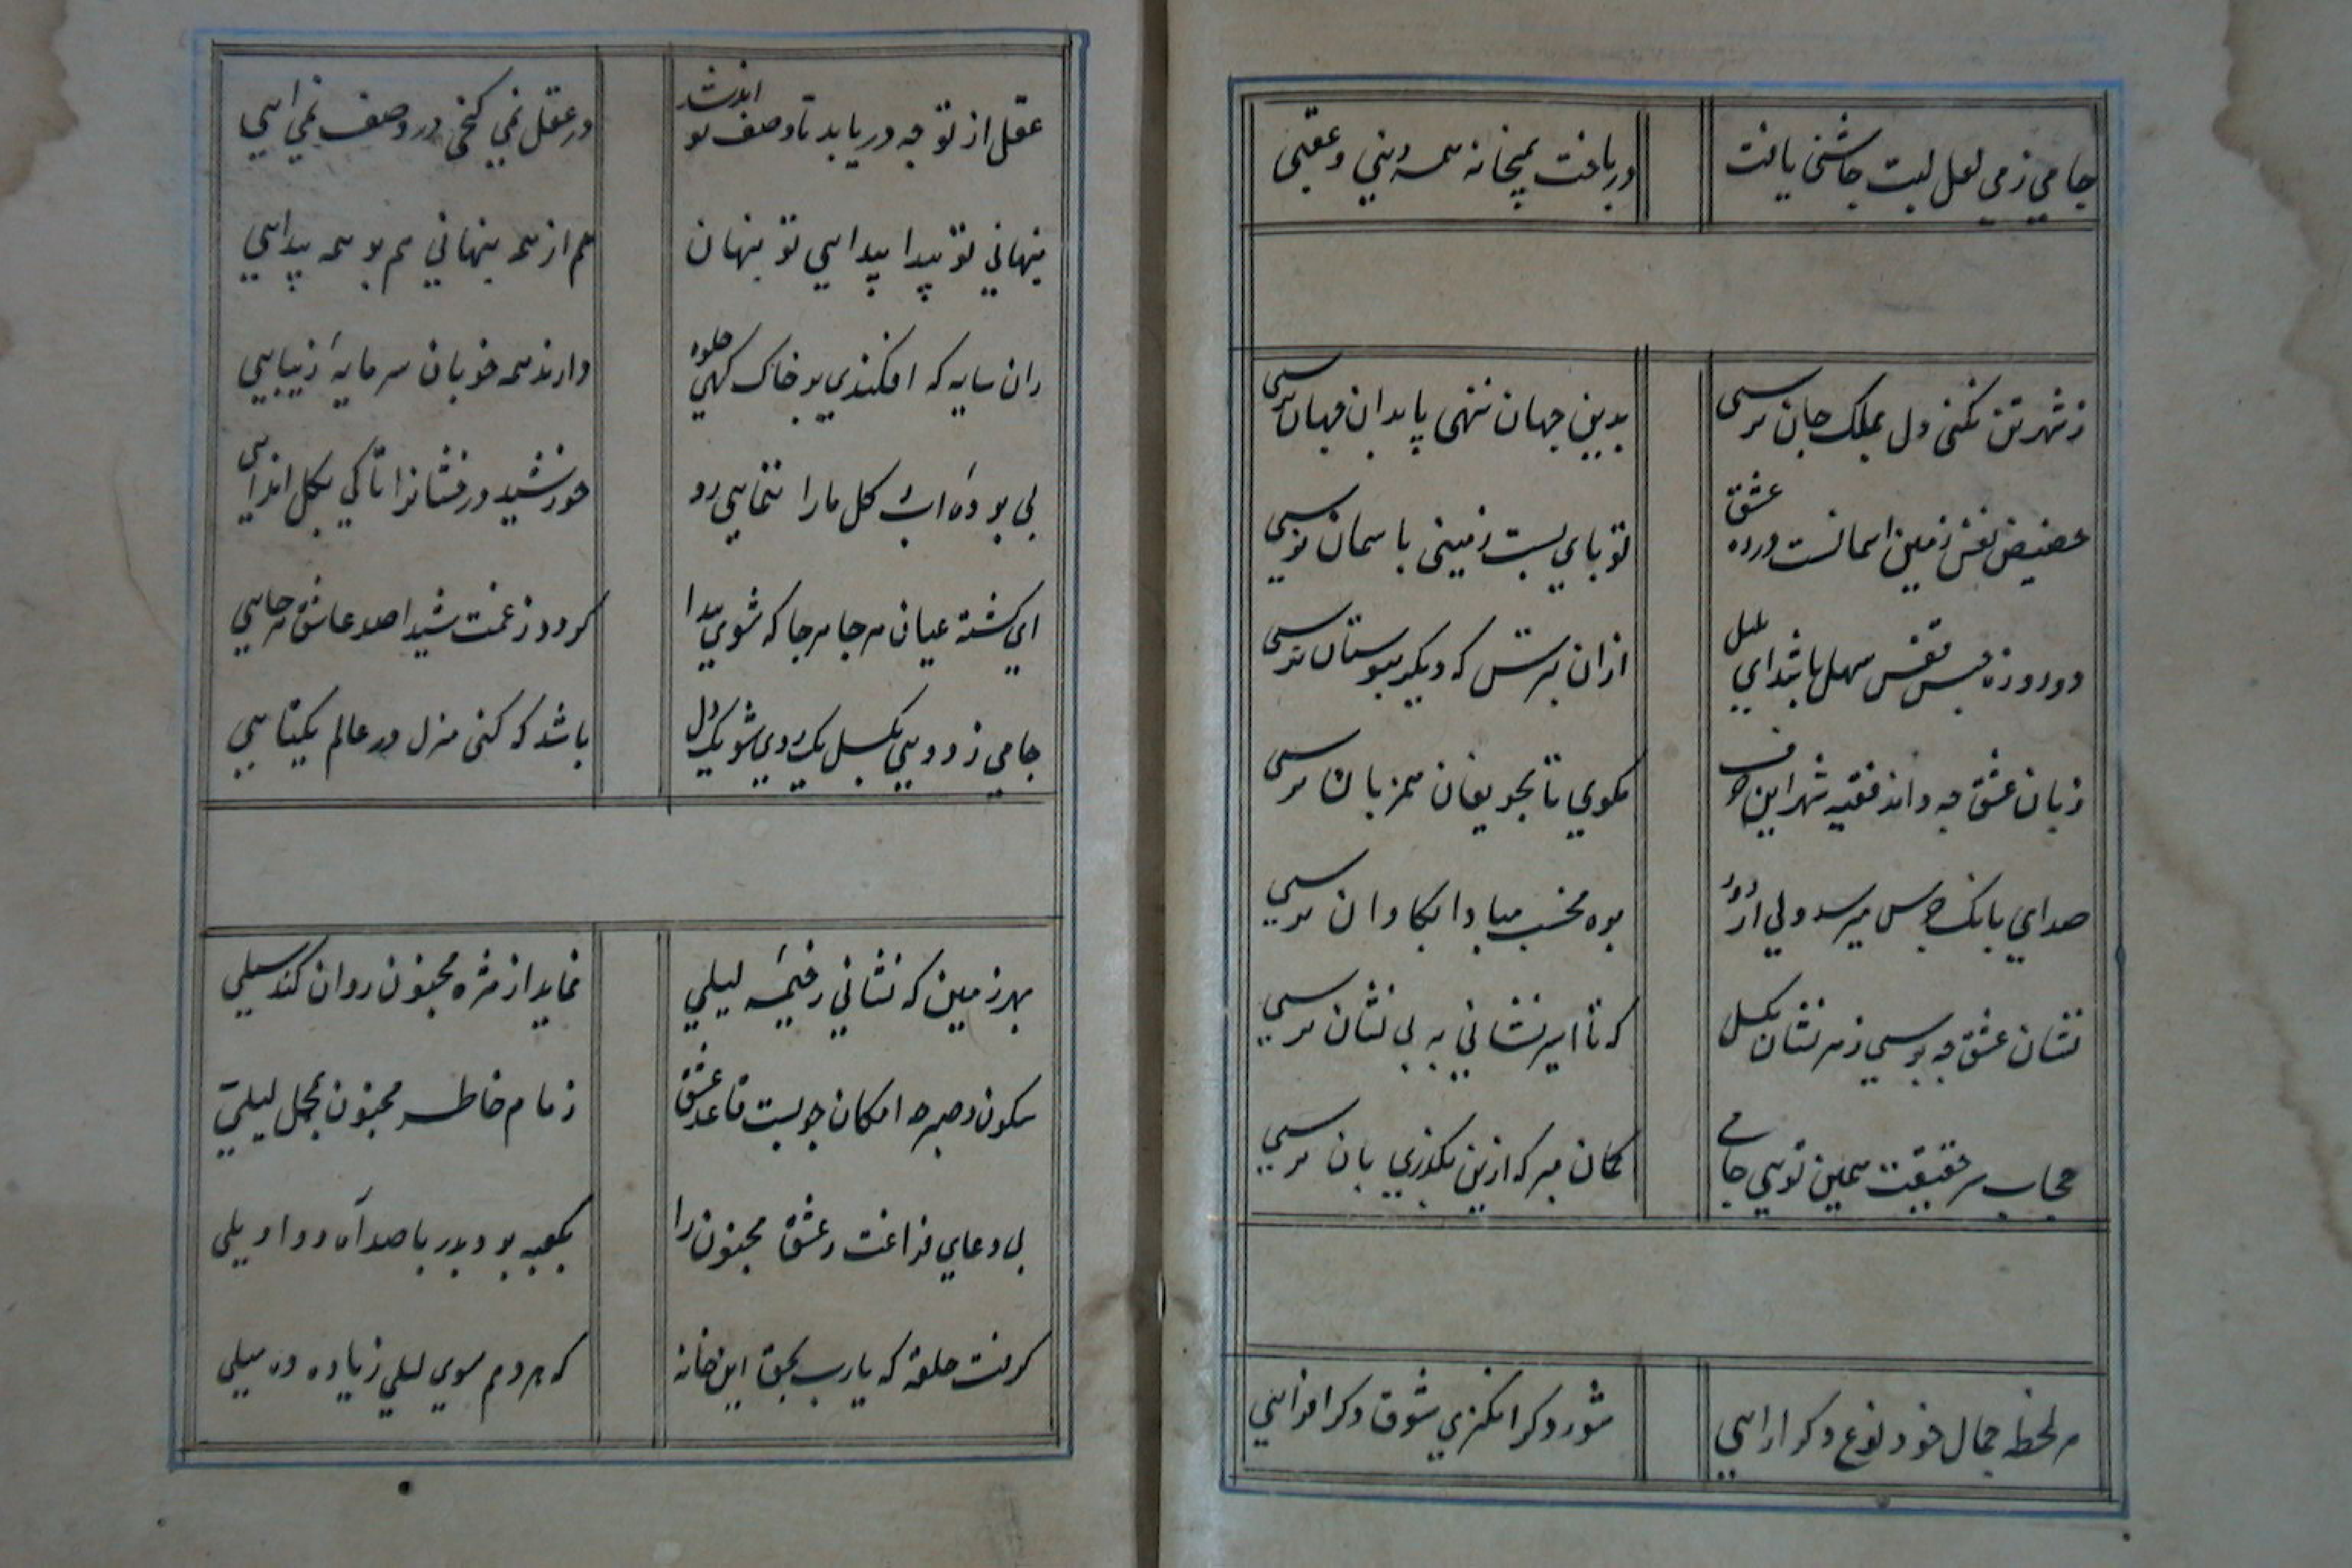 جامي ز مي لعل لبت چاشني يافت
در باخت بميخانه همه ديني و عقبي
ز شهر تن نكني دل بملك جان نرسي
بدين جهان ننهي پا بدان جهان نرسي
حضيض نفس زمين اسمانست در ره عشق
تو پاي بست زميني باسمان نرسي
دو روزه حبس قفس سهل باشد اي بلبل
ازان بترس كه ديكر ببوستان نرسي
زبان عشق چه داند فقيه شهر اين حرف
مكوي تا بحريفان همزبان نرسي
صداي بانك جرس ميرسد ولي از دور
بره مخسب مبادا بكاروان نرسي
نشان عشق چه پرسي ز هر نشان بكسل
كه تا اسير نشاني به بي نشان نرسي
حجاب سر حقيقت همين تويي جامي
كمان مبر كه ازين نكذري بان نرسي
هر لحظه جمال خود نوع دكر ارايي
شور دكر انكيزي شوق دكر افزايي
عقل از تو چه دريابد تا وصف تو انديشد
در عقل نمي كنجي در وصف نمي ايي
پنهاني تو پيدا پيدايي تو پنهان
هم از همه پنهاني هم بر همه پيدايي
زان سايه كه افكندي بر خاك كهي جلوه
دارند همه خوبان سرمايۀ زيبايي
بي پردۀ اب و كل ما را ننمايي رو
خورشيد درخشانرا تا كي بكل اندايي
اي كشته عيان هر جا هر جا كه شوي پيدا
كردد ز غمت شيدا صد عاشق هرجايي
جامي ز دوييي بكسل يك روي شو يك دل
باشد كه كني منزل در عالم يكتايي
بهر زمين كه نشاني ز خيمۀ ليلي
نمايد از مژه مجنون روان كند سيلي
سكون و صبر چه امكان چو بست قاعد عشق
زمام خاطر مجنون بمحمل ليلي
پي دعاي فراغت ز عشق مجنون را
بكعبه برد پدر با صد آه و واويلي
كرفت حلقه كه يارب بحق اين خانه
كه هر دمم سوي ليلي زياده ده ميلي